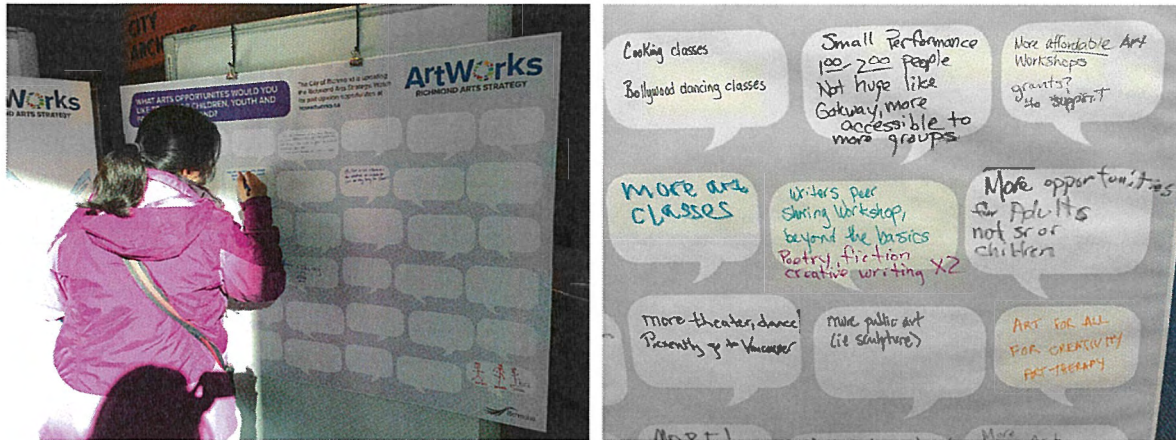 CITY
ArtWorks
RICHMOND ARTS STRATEGY
WHAT ARTS OPPORTUNITES WOULD YOU
LIKE
CHILDREN, YOUTH AND
The City of Richmond is updating
the Richmond Arts Strategy. Watch
for participation opportunities at
Works
ARTS STRATEGY
Richmond
Cooking classes
Bollywood dancing classes
Small Performance
100-200 people
Not huge like
Gateway, more
accessible to
more groups
More affordable Art
Workshops
grants?
to support
more art
classes
Writers peer
sharing workshop,
beyond the basics
Poetry, fiction
creative writing X2
More opportunities
for Adults
not sr or
children
more theater, dance!
Presently go to Vancouver
more public art
(ie sculptures)
ART FOR ALL
FOR CREATIVITY
ART THERAPY
More